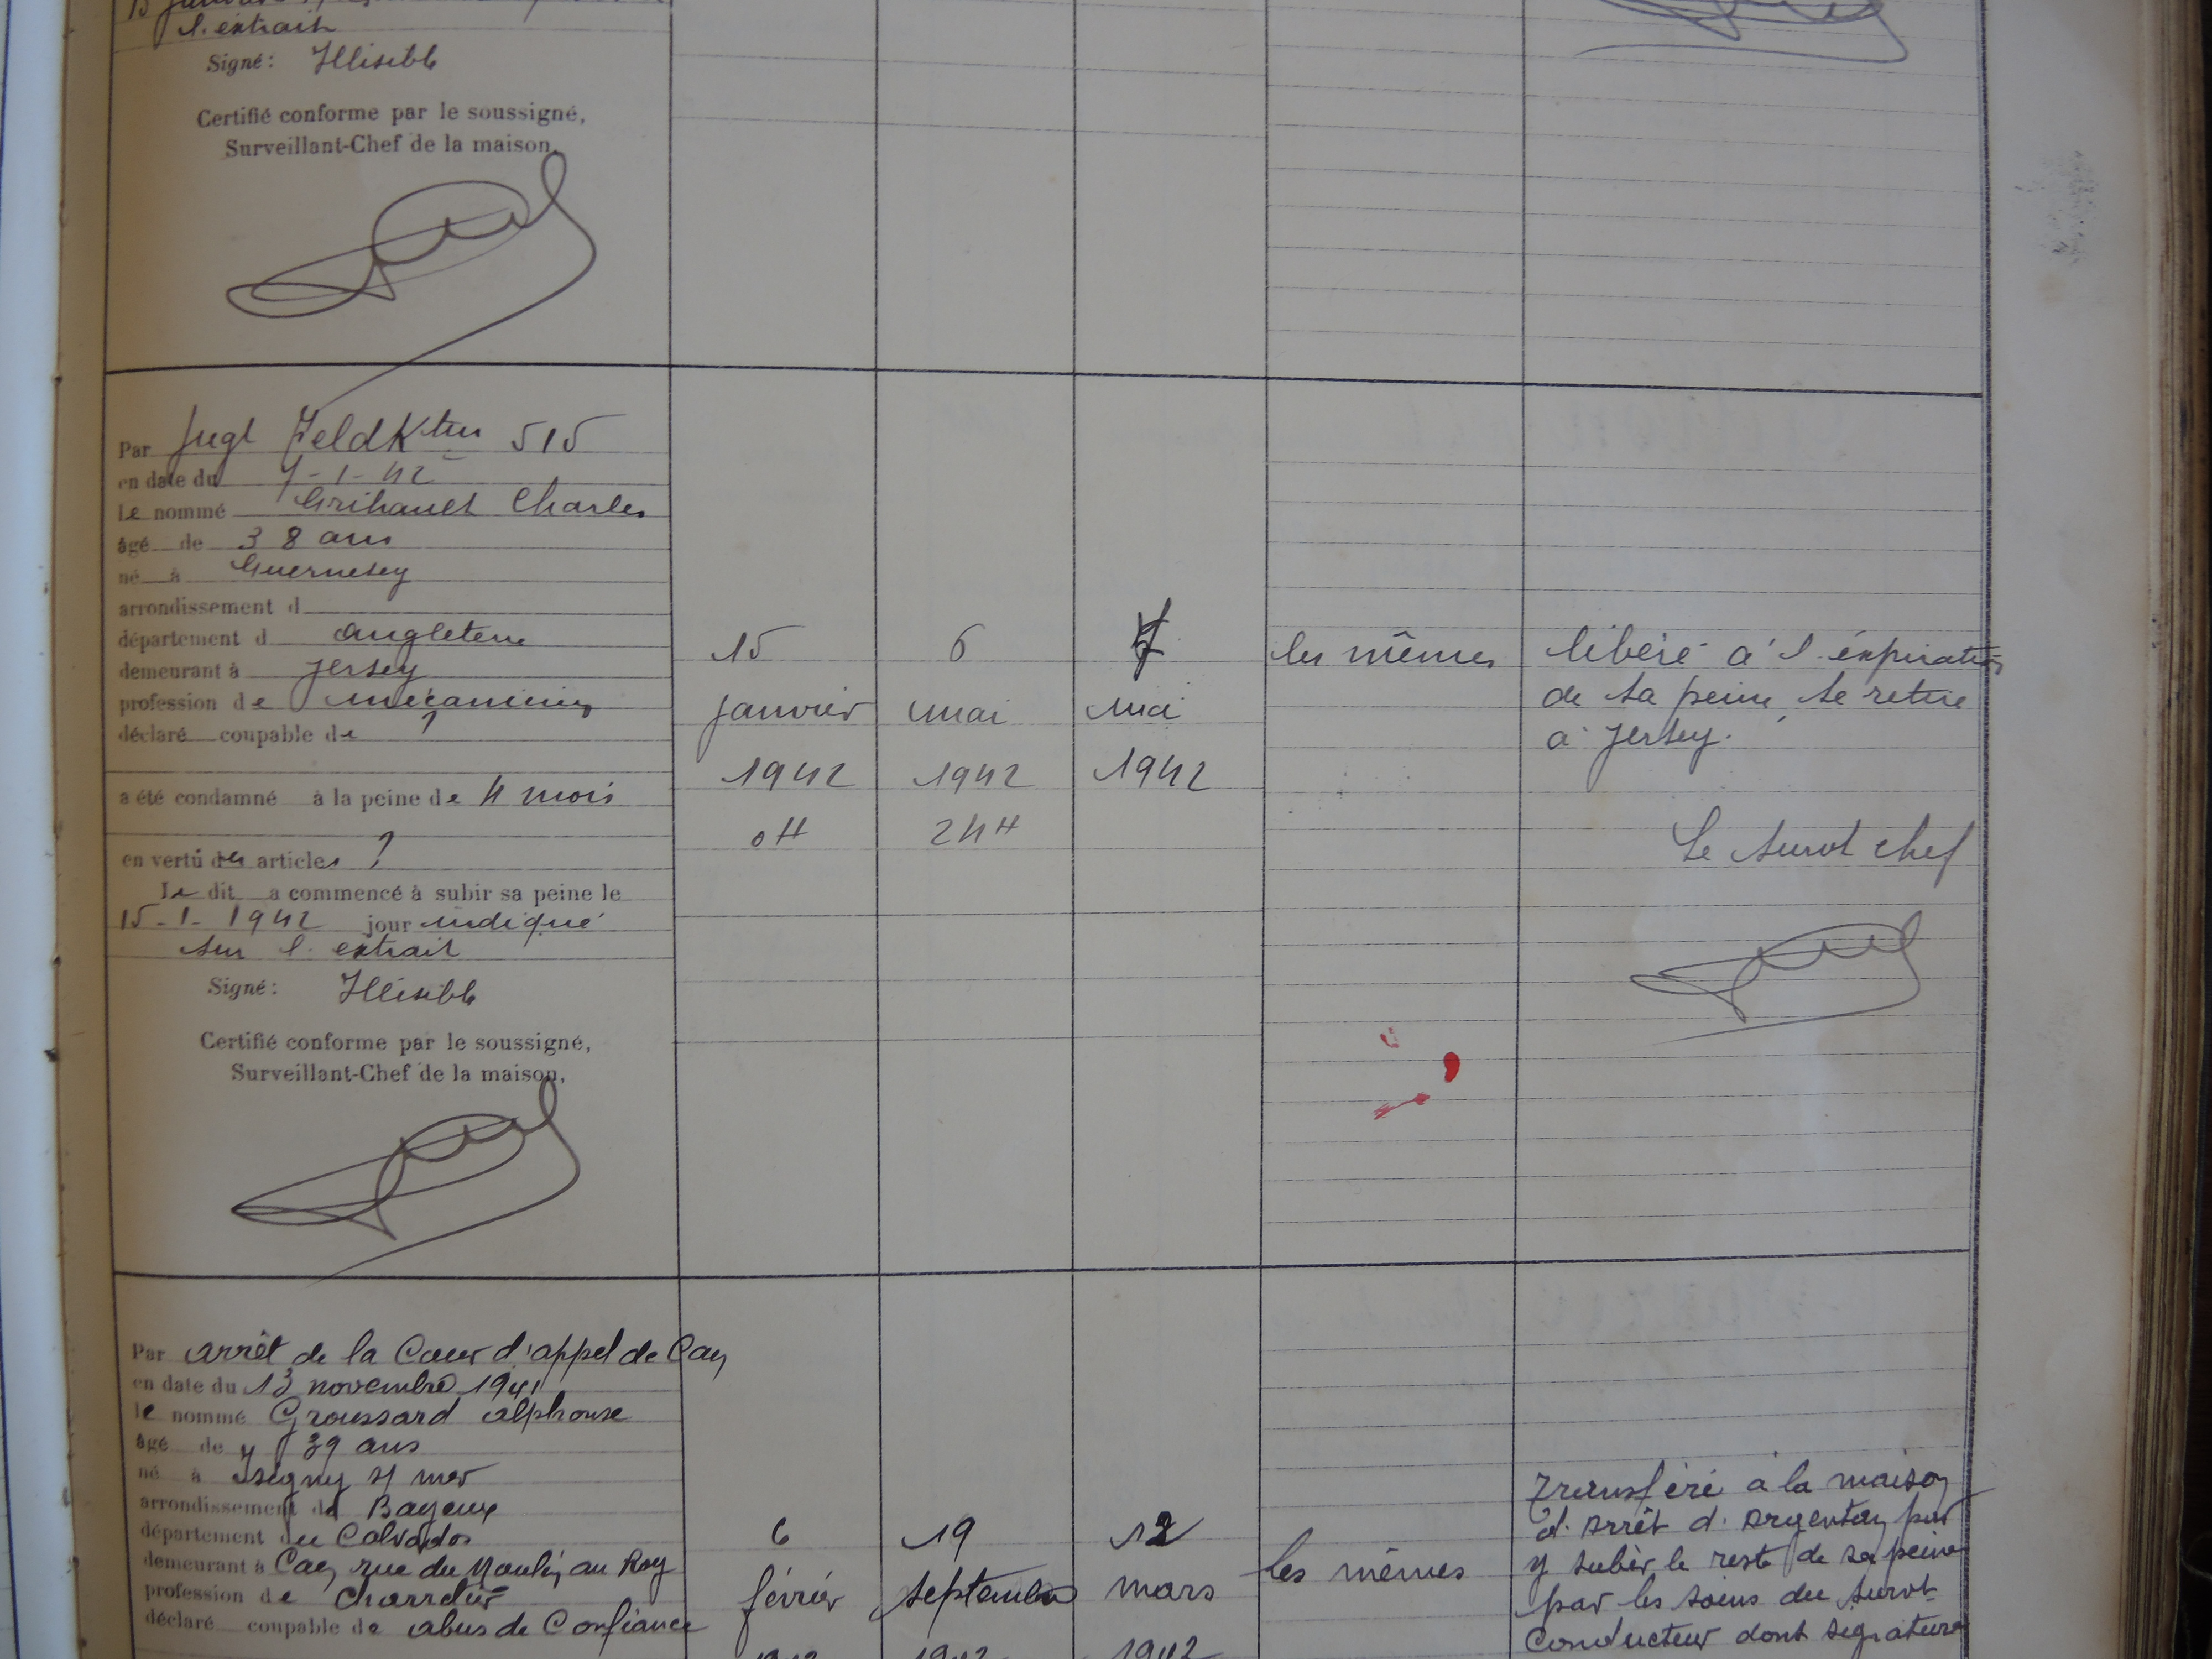 l'extrait
Signé: Illisible
Certifié conforme par le soussigné,
Surveillant-Chef de la maison,
Par Jugt FeldKtur 515
en date du 7-1-42
Le nommé Grihault Charles
âgé de 38 ans
né à Guernesey
arrondissement d
département d Angleterre
demeurant à Jersey
profession de mécanicien
déclaré coupable de ?
a été condamné à la peine de 4 mois
en vertu des articles ?
Le dit a commencé à subir sa peine le
15-1-1942 jour indiqué
sur l'extrait
Signé: Illisible
Certifié conforme par le soussigné,
Surveillant-Chef de la maison,
15
janvier
1942
0H
6
mai
1942
24H
mai
1942
les mêmes
libéré à l'éxpiration
de sa peine, se retire
à Jersey.
Le survt chef
Par arrêt de la Cour d'appel de Caen
en date du 13 novembre 1941
le nommé Groussard Alphonse
âgé de 39 ans
né à Isigny s/ mer
arrondissement de Bayeux
département du Calvados
demeurant à Caen, rue du Moulin au Roy
profession de charretier
déclaré coupable de abus de Confiance
6
février
19
septembre
1942
mars
1942
les mêmes
Transféré à la maison
d'Arrêt d'Argentan pour
y subir le reste de sa peine
par les soins du survt
Conducteur dont signature